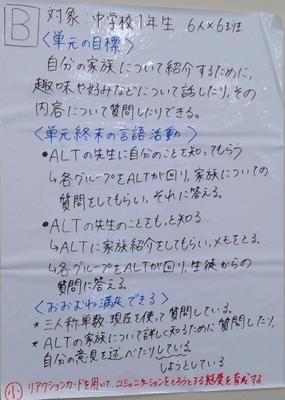 B 対象:中学校1年生 6人×6班
<単元の目標>
自分の家族について紹介するために、
趣味や好みなどについて話したり、その
内容について質問したりできる。
<単元終末の言語活動>
●ALTの先生に自分のことを知ってもらう
↳各グループをALTが回り、家族についての
質問をしてもらい、それに答える。
●ALTの先生のことをもっと知る
↳ALTに家族紹介をしてもらい、メモをとる。
↳各グループをALTが回り、生徒からの
質問に答える。
<おおむね満足できる>
*三人称単数現在を使って質問している。
*ALTの家族について詳しく知るために質問したり、
自分の意見を述べたりしている
しようとしている
小 リアクションカードを用いて、コミュニケーションをとろうとする態度を育成する。